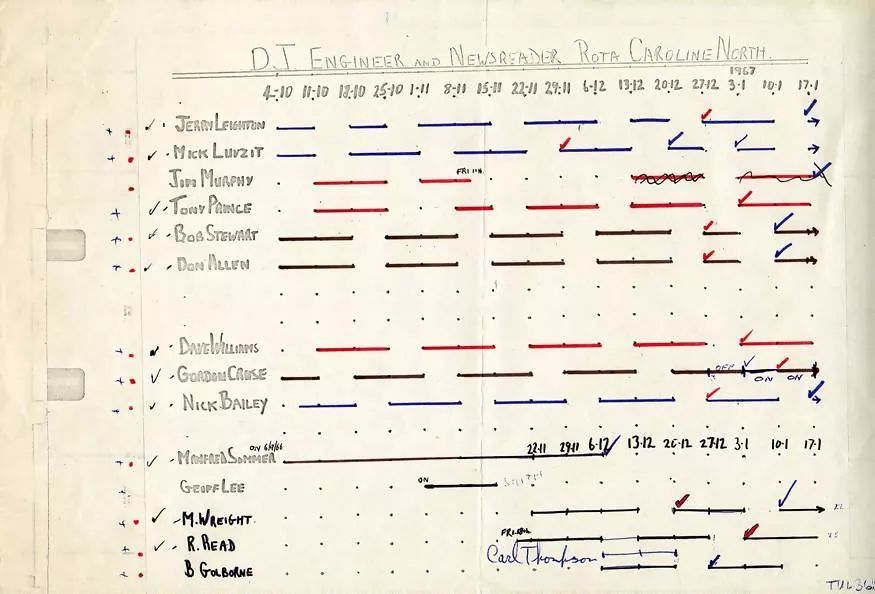 D.J ENGINEER AND NEWSREADER ROTA CAROLINE NORTH.
1967
4-10 11-10 18-10 25-10 1-11 8-11 15-11 22-11 29-11 6-12 13-12 20-12 27-12 3-1 10-1 17-1
JERRY LEIGHTON
MICK LUVZIT
JIM MURPHY
TONY PRINCE
BOB STEWART
DON ALLEN
DAVE WILLIAMS
GORDON CRUSE OFF ON ON
NICK BAILEY
22-11 29-11 6-12 13-12 20-12 27-12 3-1 10-1 17-1
MANFRED SOMMER
GEOFF LEE ON
M. WREIGHT.
R. READ
Carl Thompson
B GOLBORNE